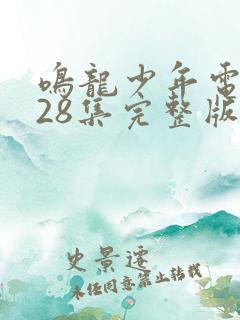 鳴龍少年電
28集完整版
史景遷
未经同意禁止转载